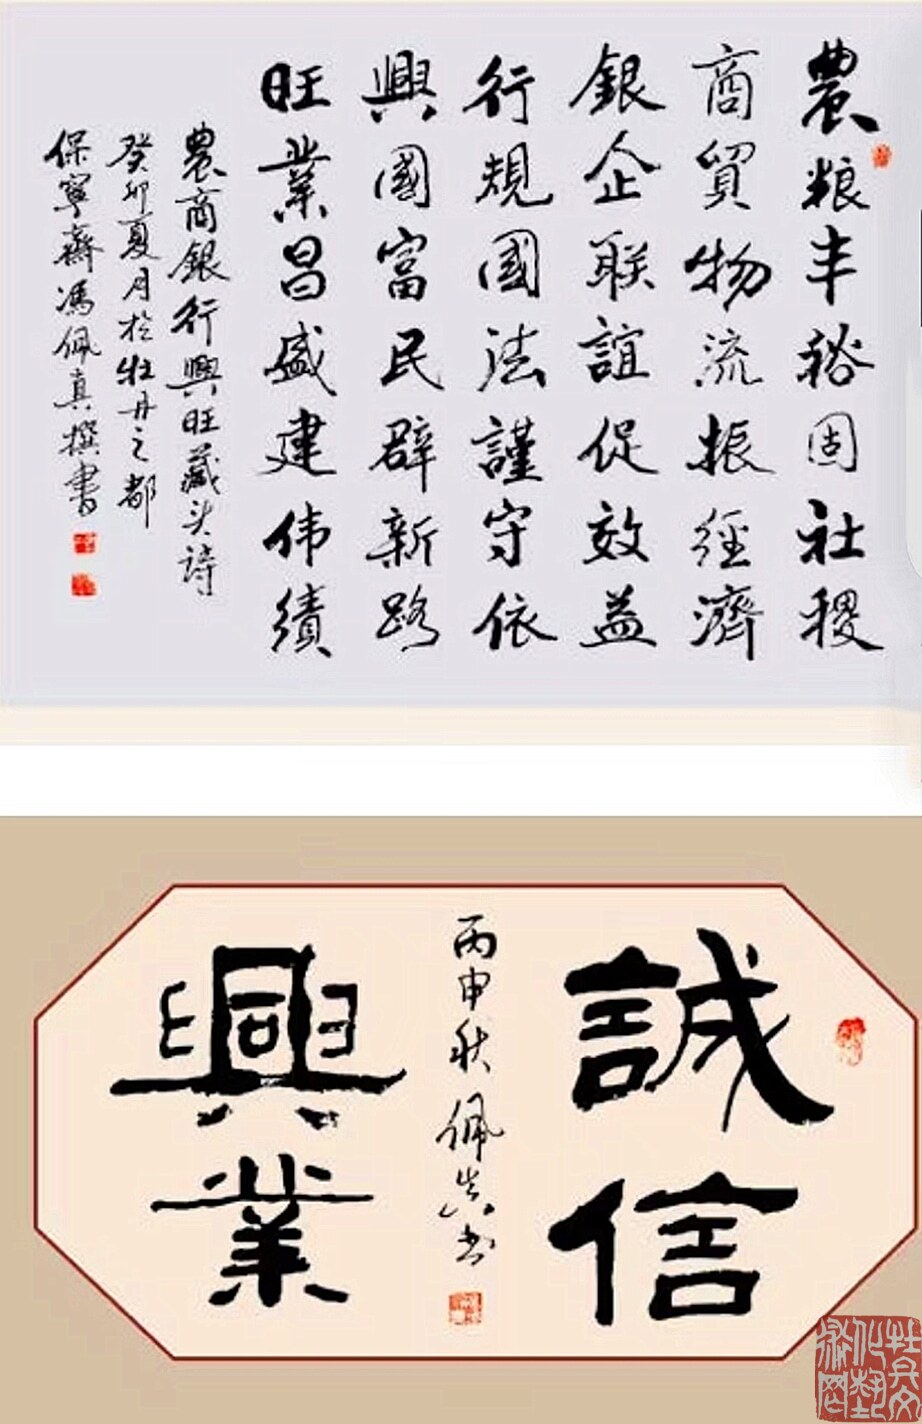 農粮丰裕固社稷
商貿物流振經濟
銀企联誼促效益
行規國法謹守依
興國富民辟新路
旺業昌盛建伟績
農商銀行興旺藏头诗
癸卯夏月於牡丹之都
保寧齋馮佩真撰書
誠信
丙申秋佩真书
興業